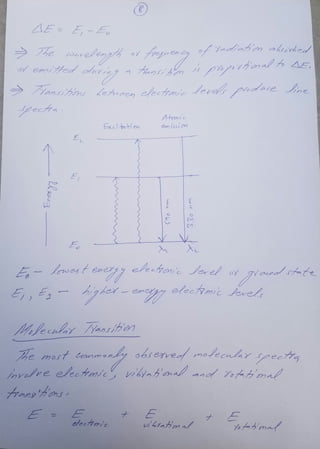 8
ΔE = E₁ - E₀
⇒ The wavelength or frequency of radiation absorbed
or emitted during a transition is proportional to ΔE.
⇒ Transitions between electronic levels produce line
spectra.
Excitation Atomic emission
E₂
E₁
Energy
590 nm
330 nm
E₀
E₀ - lowest energy electronic level or ground state
E₁, E₂ - higher-energy electronic levels
Molecular Transition
The most commonly observed molecular spectra
involve electronic, vibrational and rotational
transitions.
E = E electronic + E vibrational + E rotational